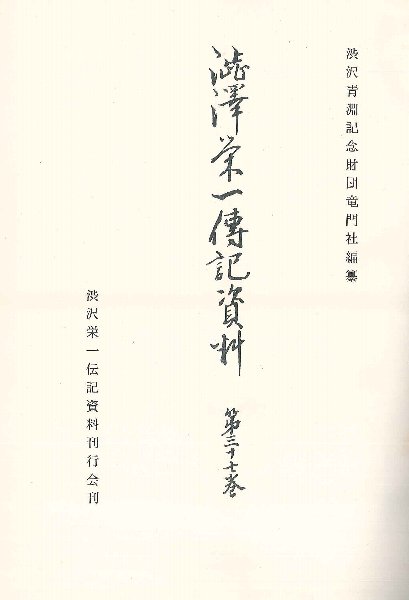 渋沢青淵記念財団竜門社編纂
澁澤栄一傳記資料 第三十七巻
渋沢栄一伝記資料刊行会刊